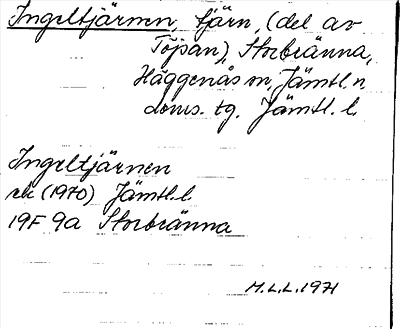 Ingeltjärnen, tjärn, (del av
Töjsan), Storbränna,
Häggenås sn, Jämtl. n.
doms. tg. Jämtl. l.
Ingeltjärnen
ek (1970) Jämtl. l.
19F 9a Storbränna
M.L.L. 1971